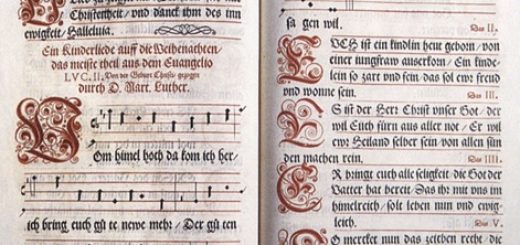 Christenheit/ und danck ihm des inn
ewigkeit/ Halleluia.
Ein Kinderliede auff die Weihenachten/
das meiste theil aus dem Euangelio
LVC. II. Von der Geburt Christi/ gezogen
durch D. Mart. Luther.
Vom himel hoch da kom ich her/
ich bring euch gute newe mehr/ Der guten
sagen wil.
Das II.
EVCH ist ein kindlin heut geborn/ von
einer jungfraw auserkorn/ Ein kinde-
lein so zart und fein/ das sol ewr freud
und wonne sein.
Das III.
ES ist der Herr Christ unser Got/ der
wil Euch fürn aus aller not/ Er wil
ewr Heiland selber sein/ von allen sün
den machen rein.
Das IIII.
ER bringt euch alle seligkeit/ die Got der
Vatter hat bereit/ Das ihr mit uns im
himelreich/ solt leben nun und ewig-
leich.
Das V.
SO mercket nun das zeichen recht/ die